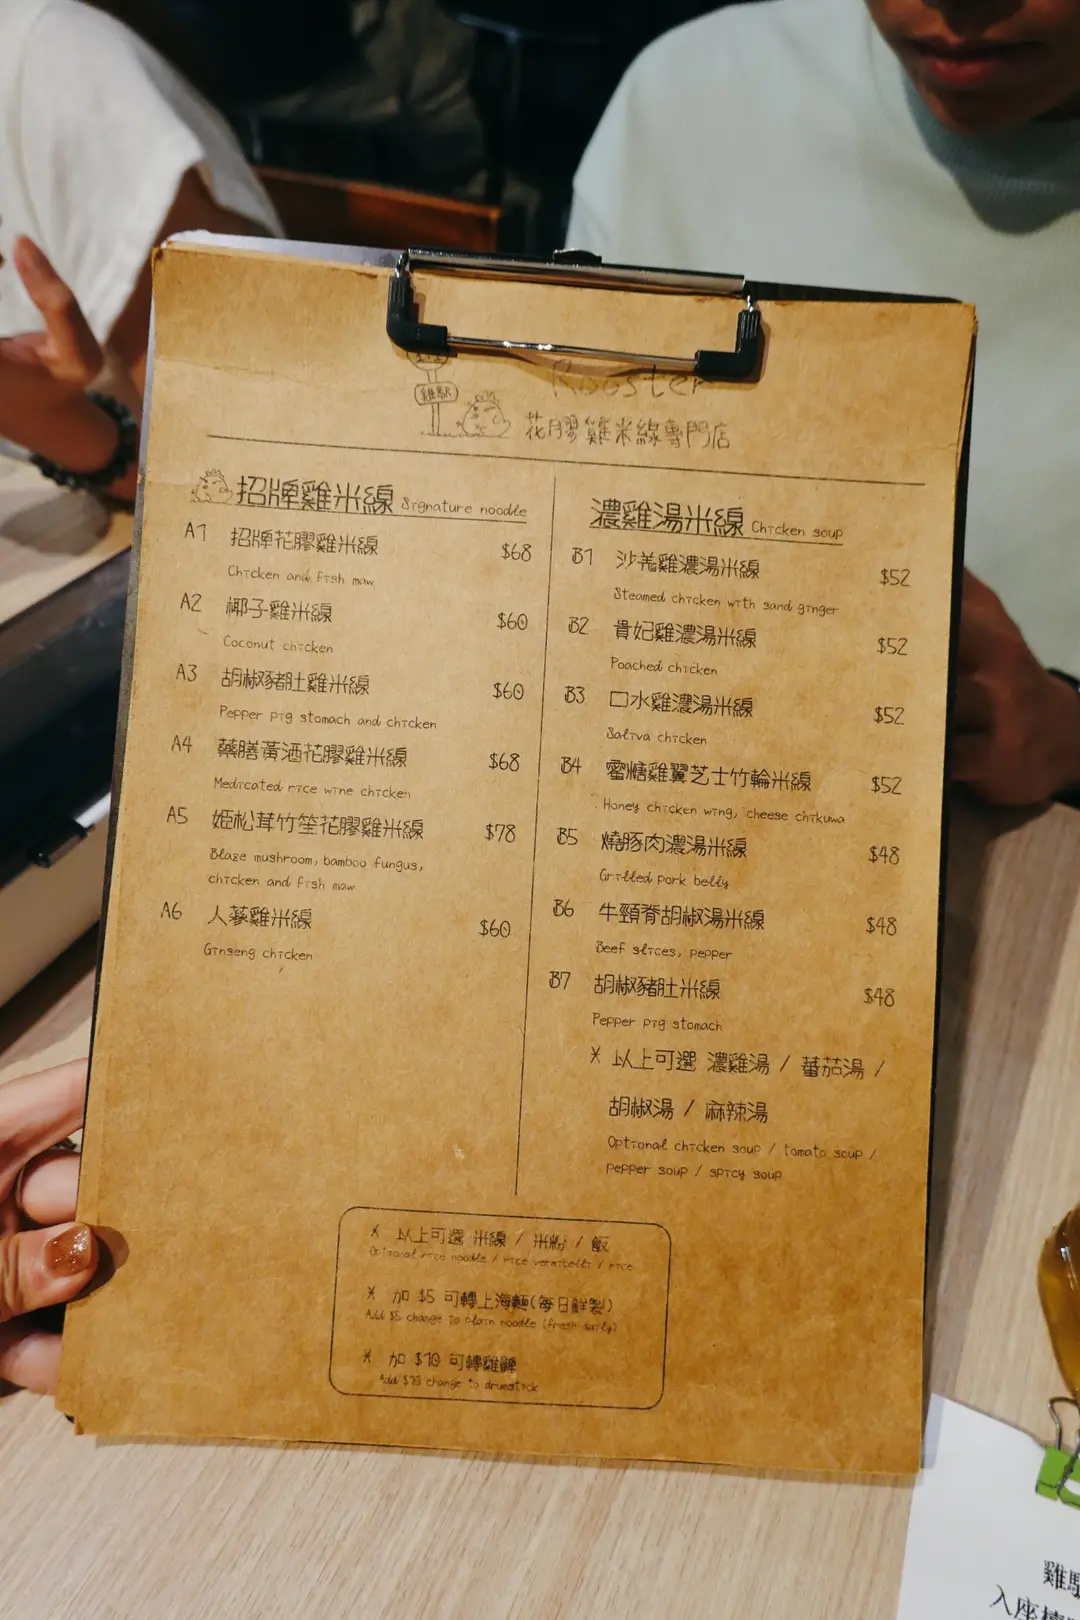 雞駅
Rooster
花膠雞米線專門店
招牌雞米線 Signature noodle
A1 招牌花膠雞米線 $68
Chicken and fish maw
A2 椰子雞米線 $60
Coconut chicken
A3 胡椒豬肚雞米線 $60
Pepper pig stomach and chicken
A4 藥膳黃酒花膠雞米線 $68
Medicated rice wine chicken
A5 姬松茸竹笙花膠雞米線 $78
Blaze mushroom, bamboo fungus,
chicken and fish maw
A6 人蔘雞米線 $60
Ginseng chicken
濃雞湯米線 Chicken soup
B1 沙羌雞濃湯米線 $52
Steamed chicken with sand ginger
B2 貴妃雞濃湯米線 $52
Poached chicken
B3 口水雞濃湯米線 $52
Saliva chicken
B4 蜜糖雞翼芝士竹輪米線 $52
Honey chicken wing, cheese chikuwa
B5 燒豚肉濃湯米線 $48
Grilled pork belly
B6 牛頸脊胡椒湯米線 $48
Beef slices, pepper
B7 胡椒豬肚米線 $48
Pepper pig stomach
* 以上可選 濃雞湯 / 蕃茄湯 /
胡椒湯 / 麻辣湯
Optional chicken soup / tomato soup /
pepper soup / spicy soup
* 以上可選 米線 / 米粉 / 飯
Optional rice noodle / rice vermicelli / rice
* 加 $5 可轉上海麵(每日鮮製)
Add $5 change to plain noodle (fresh daily)
* 加 $10 可轉雞髀
Add $10 change to drumstick
雞駅
入座